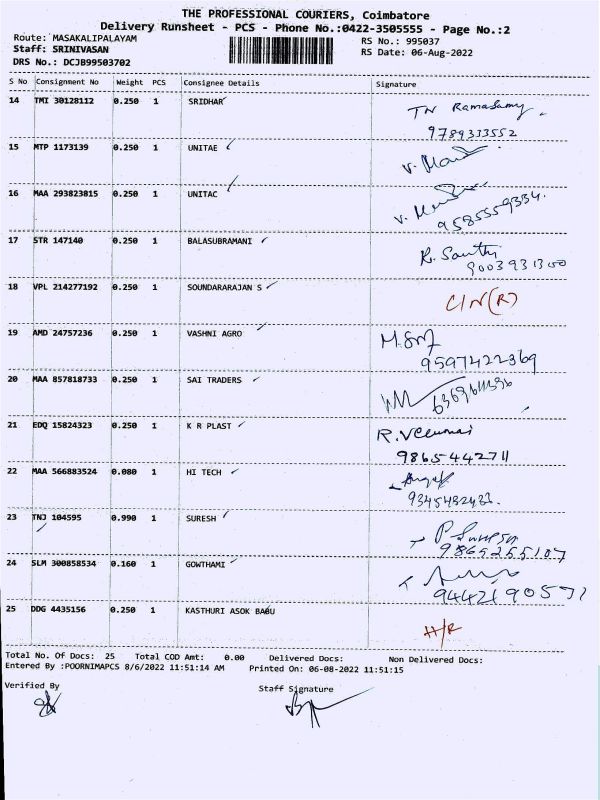 THE PROFESSIONAL COURIERS, Coimbatore
Delivery Runsheet - PCS - Phone No.:0422-3505555 - Page No.:2
Route: MASAKALIPALAYAM RS No.: 995037
Staff: SRINIVASAN RS Date: 06-Aug-2022
DRS No.: DCJB99503702
S No Consignment No Weight PCS Consignee Details Signature
14 TMI 30128112 0.250 1 SRIDHAR TN Ramasamy
9789333552
15 MTP 1173139 0.250 1 UNITAE
16 MAA 293823815 0.250 1 UNITAC
9585559334.
17 STR 147140 0.250 1 BALASUBRAMANI R. Santhi
9003931300
18 VPL 214277192 0.250 1 SOUNDARARAJAN S C/N(R)
19 AMD 24757236 0.250 1 VASHNI AGRO
9597422369
20 MAA 857818733 0.250 1 SAI TRADERS
21 EDQ 15824323 0.250 1 K R PLAST
9865442711
22 MAA 566883524 0.080 1 HI TECH
23 TNJ 104595 0.990 1 SURESH
9865255107
24 SLM 300858534 0.160 1 GOWTHAMI
25 DDG 4435156 0.250 1 KASTHURI ASOK BABU H/R
Total No. Of Docs: 25 Total COD Amt: 0.00 Delivered Docs: Non Delivered Docs:
Entered By :POORNIMAPCS 8/6/2022 11:51:14 AM Printed On: 06-08-2022 11:51:15
Verified By Staff Signature